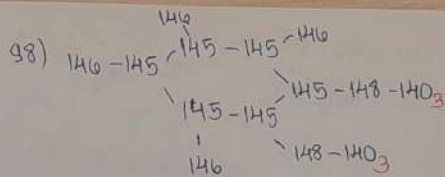 146
98) 146 - 145 145 - 145 - 146
145 - 148 - 140₃
145 - 145
146 148 - 140₃